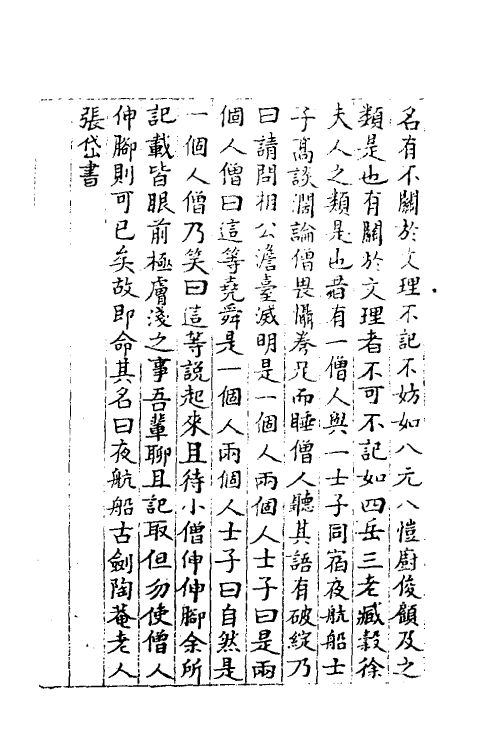 名有不關於文理不記不妨如八元八愷廚俊顧及之
類是也有關於文理者不可不記如四岳三老臧穀徐
夫人之類是也昔有一僧人與一士子同宿夜航船士
子高談濶論僧畏懾拳足而睡僧人聽其語有破綻乃
曰請問相公澹臺滅明是一個人兩個人士子曰是兩
個人僧曰這等堯舜是一個人兩個人士子曰自然是
一個人僧乃笑曰這等說起來且待小僧伸伸腳余所
記載皆眼前極膚淺之事吾輩聊且記取但勿使僧人
伸腳則可已矣故即命其名曰夜航船古劍陶菴老人
張岱書